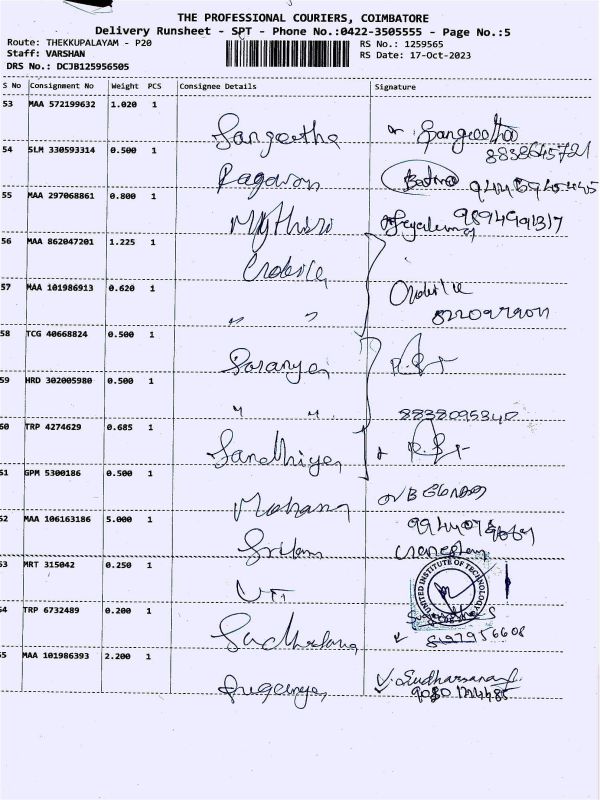 THE PROFESSIONAL COURIERS, COIMBATORE
Delivery Runsheet - SPT - Phone No.:0422-3505555 - Page No.:5
Route: THEKKUPALAYAM - P20
RS No.: 1259565
Staff: VARSHAN
RS Date: 17-Oct-2023
DRS No.: DCJB125956505
S No Consignment No Weight PCS Consignee Details Signature
53 MAA 572199632 1.020 1
Sangeetha Sangeetha
8838645721
54 SLM 330593314 0.500 1
Ragavan
55 MAA 297068861 0.800 1
9894991317
56 MAA 862047201 1.225 1
57 MAA 101986913 0.620 1
" "
58 TCG 40668824 0.500 1
Saranya
59 HRD 302005980 0.500 1
" " 8838095340
60 TRP 4274629 0.685 1
Sandhiya
61 GPM 5300186 0.500 1
Mohana
52 MAA 106163186 5.000 1
Sriram
53 MRT 315042 0.250 1
UNITED INSTITUTE OF TECHNOLOGY
54 TRP 6732489 0.200 1
Sudharsana
55 MAA 101986393 2.200 1
V. Sudharsana
Suganya